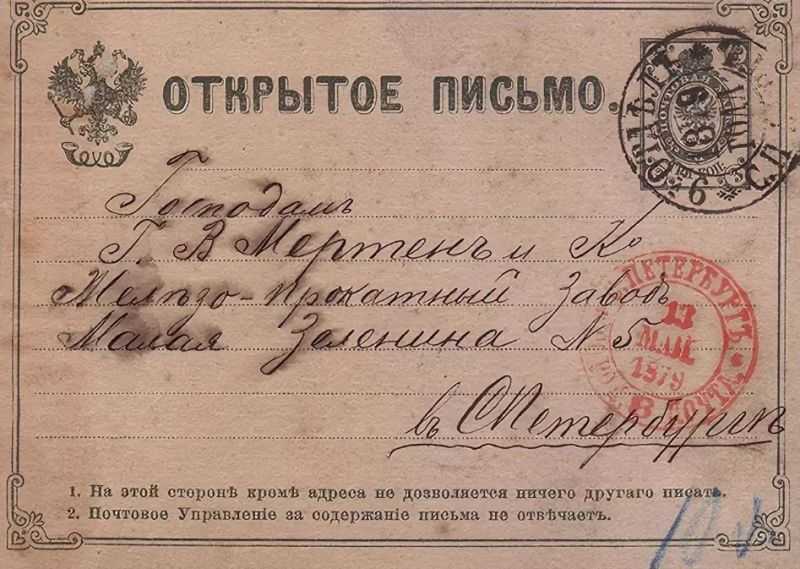 ОТКРЫТОЕ ПИСЬМО.
Господамъ
Г. В Мертенъ и Ко
Желѣзо-прокатный Заводъ
Малая Зеленина N 5
въ СПетербургѣ
С.ПЕТЕРБУРГЪ
13
МАЙ
1879
1. На этой сторонѣ кромѣ адреса не дозволяется ничего другаго писать.
2. Почтовое Управленіе за содержаніе письма не отвѣчаетъ.